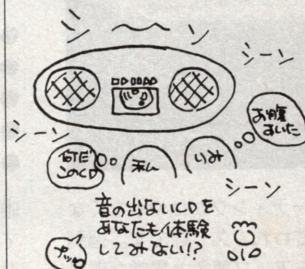 シーン
シーン
シーン
シーン
お腹
すいた
何だ
このCD
私ん
いみ
音の出ないCDを
あなたも体験
してみない!?
ナッ